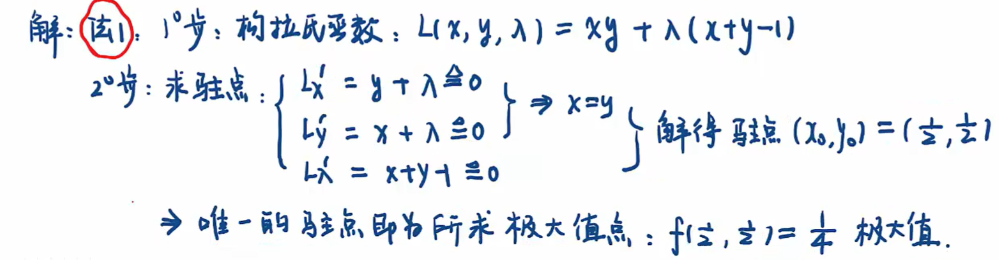 解：法1：1°步：构拉氏函数：L(x, y, λ) = xy + λ(x+y-1)
2°步：求驻点：{ Lx' = y + λ ≜ 0
Ly' = x + λ ≜ 0 } ⇒ x=y
Lλ' = x+y-1 ≜ 0 } 解得驻点 (x₀, y₀) = (1/2, 1/2)
⇒ 唯一的驻点即为所求极大值点：f(1/2, 1/2) = 1/4 极大值.